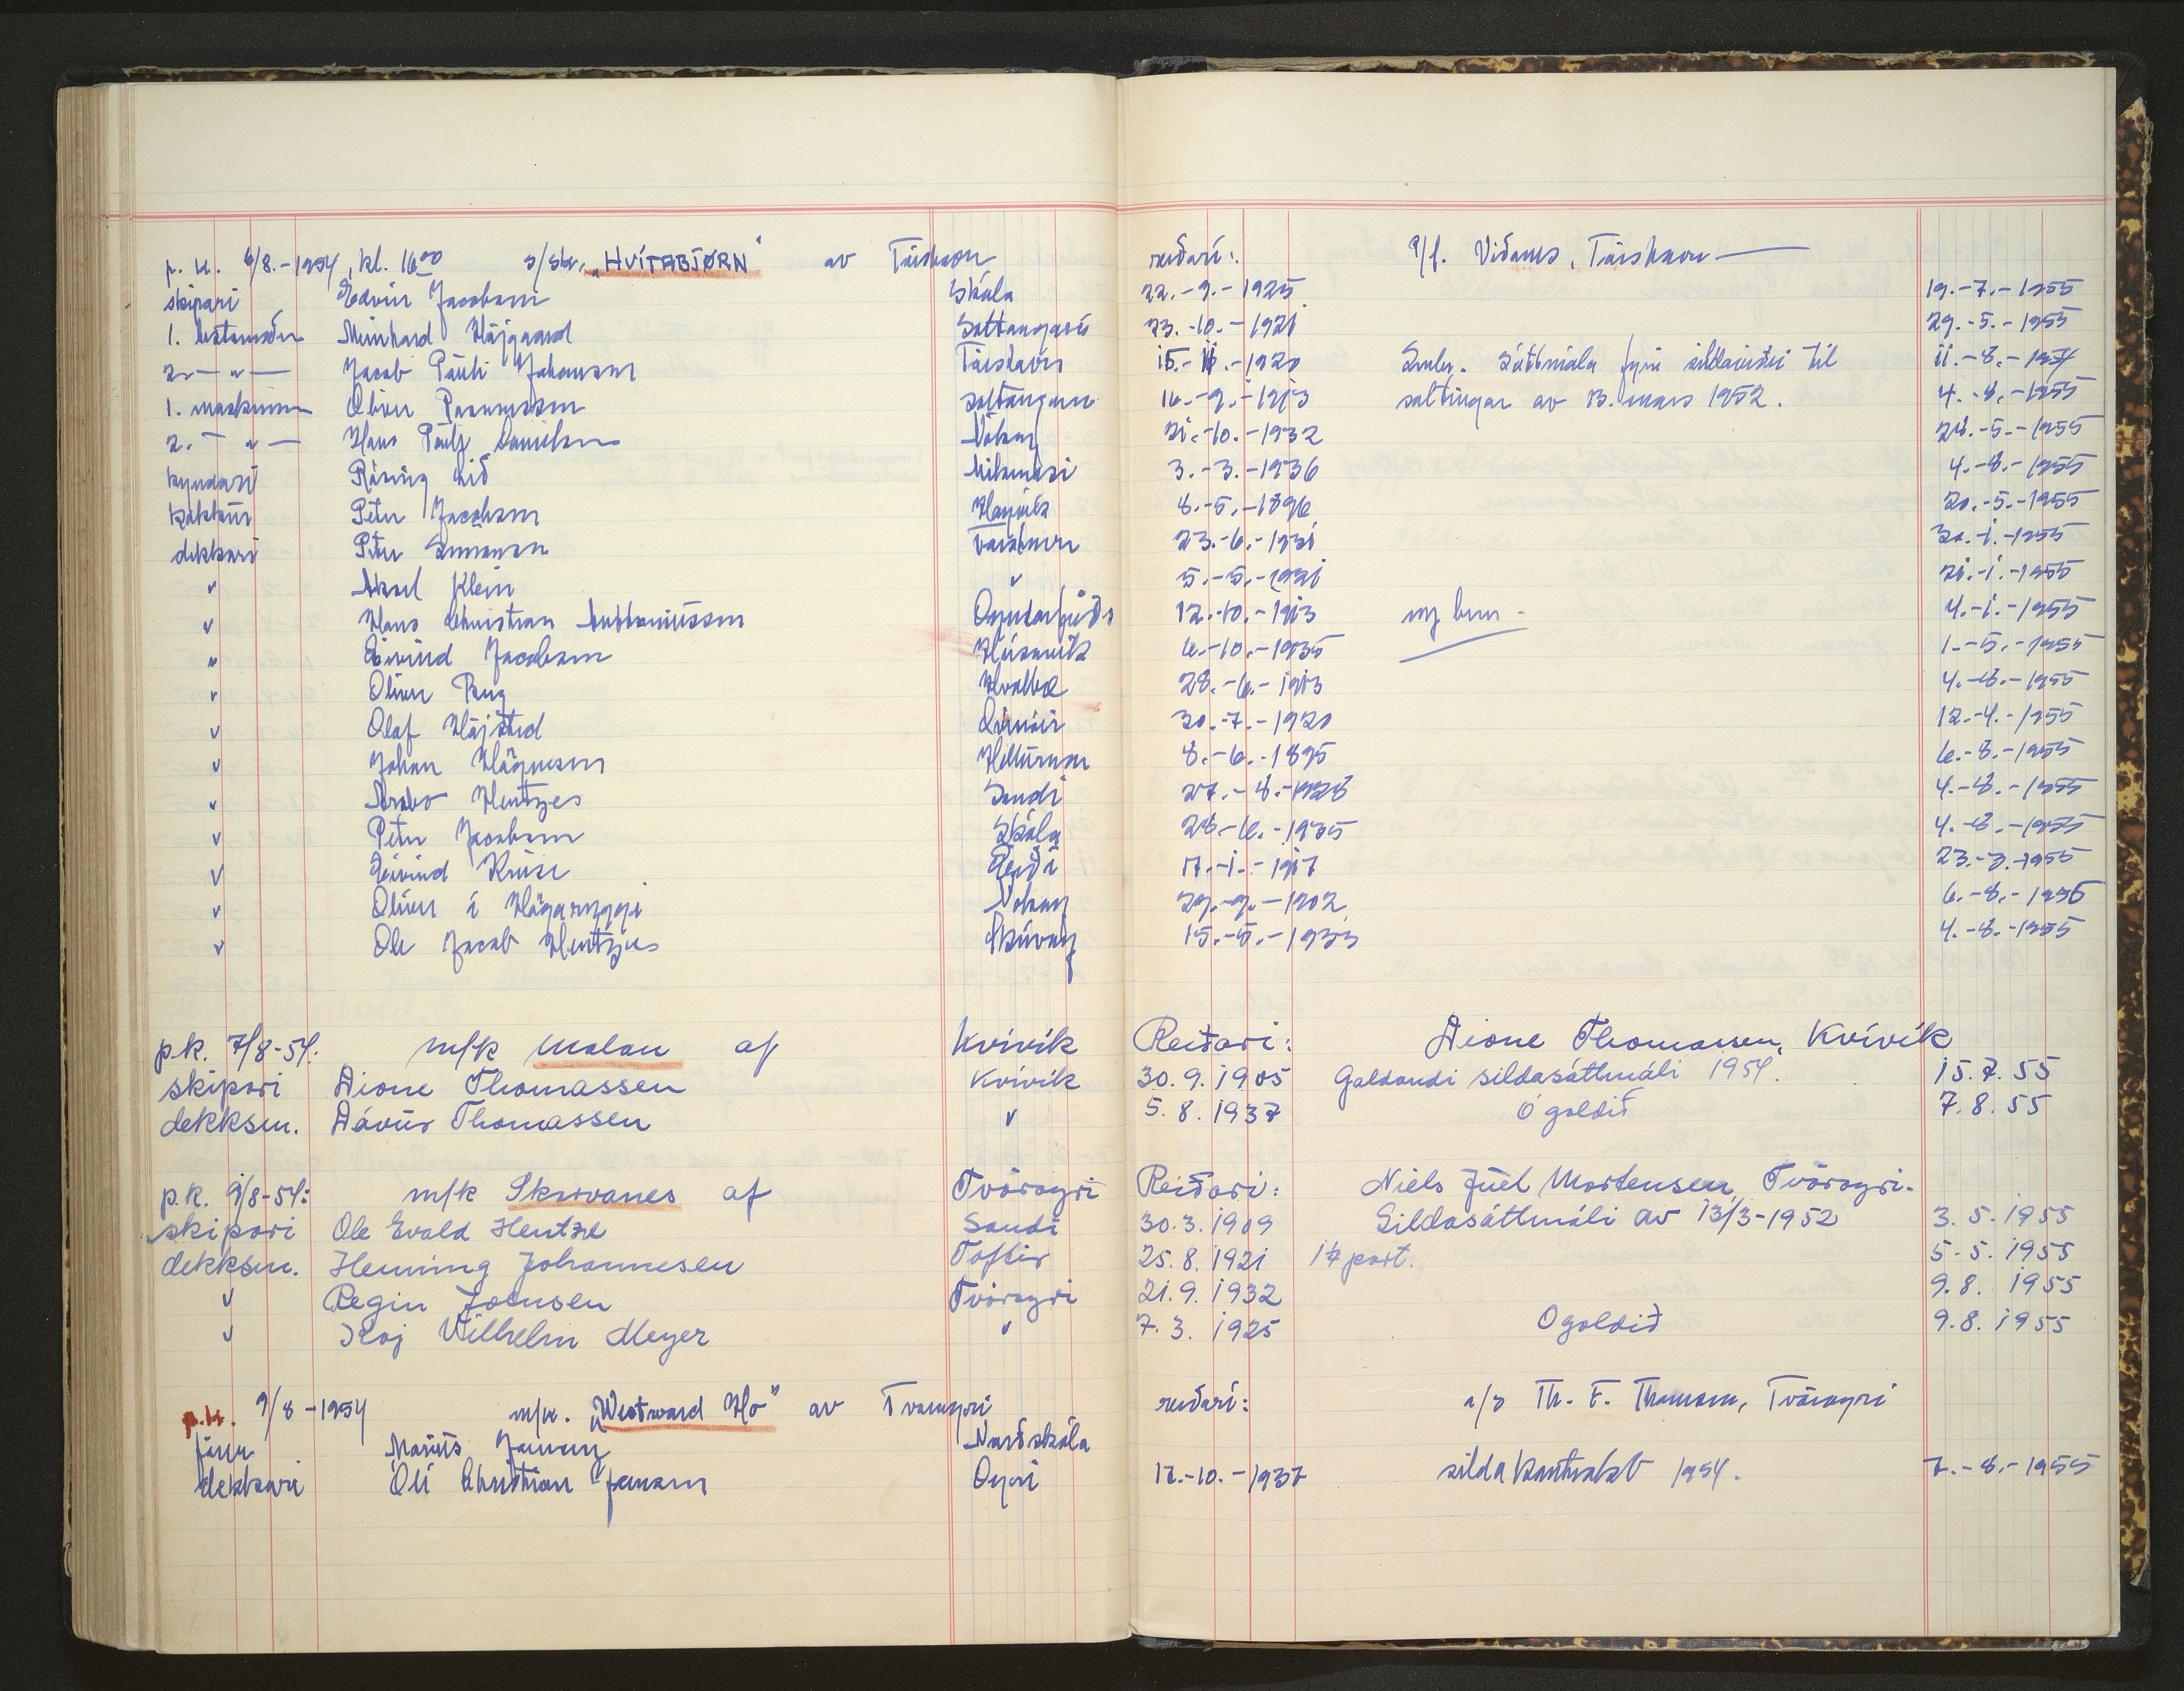 6/8.-1954, kl. 16⁰⁰ s/sk. „HVÍTABJØRN“ av Tórshavn reiðari: P/f. Viðanes, Tórshavn
skipari Edvin Jacobsen Skála 22.-9.-1925 19.-7.-1955
1. Meinhard Højgaard 23.-10.-1921 29.-5.-1955
2. — " — Jacob Pauli Johansen Tórshavn 15.- -1920 Smbr. Sáttmála fyri sildaveiði til 11.-8.-1954
1. maskinm Oliver Rasmussen -1913 saltingar av 13. mars 1952. 4.-8.-1955
2. — " — Hans Pauli Danielsen 21.-10.-1932 28.-5.-1955
kyndari Róning Lið Miðvági 3.-3.-1936 4.-8.-1955
kokkur Petur Jacobsen 8.-5.-1896 20.-5.-1955
dekkari Petur Simonsen Tórshavn 23.-6.-1931 -1955
" Aksel Klein " 5.-5.-1921 21.-1.-1955
" Hans Christian 12.-10.-1913 4.-1.-1955
" Eivind Jacobsen Húsavík 6.-10.-1935 1.-5.-1955
" Oliver Hvalba 28.-6.-1913 4.-8.-1955
" Olaf Højsted 30.-7.-1920 12.-4.-1955
" Johan Høgnesen Hellurnar 8.-6.-1895 6.-8.-1955
" Arabo Hentzes Sandi 27.-8.-1928 4.-8.-1955
" Petur Jacobsen Skála 28.-6.-1935 4.-8.-1955
" Eivind Kruse 17.-1.-1917 -1955
" Oliver á Høgaryggi 29.-9.-1902 6.-8.-1955
" Ole Jacob Hentzes Skúvoy 15.-5.-1933 4.-8.-1955
p.k. 7/8-54: m/k Malan af Kvívík Reiðari: Dione Thomassen, Kvívík
skipari Dione Thomassen Kvívík 30.9.1905 Galdandi sildasáttmáli 1954. 15.7.55
dekksm. Dávur Thomassen " 5.8.1937 Ógoldið 7.8.55
p.k. 9/8-54: m/k Skorvanes af Tvøroyri Reiðari: Niels Juel Mortensen, Tvøroyri.
skipari Ole Evald Hentze Sandi 30.3.1909 Sildasáttmáli av 13/3-1952 3.5.1955
dekksm. Henning Johannesen Toftir 25.8.1921 1¼ part. 5.5.1955
" Regin Joensen Tvøroyri 21.9.1932 9.8.1955
" Kaj Vilhelm Meyer " 7.3.1925 Ogoldið 9.8.1955
p.k. 9/8-1954 m/k. „Westward Ho“ av Tvøroyri reiðari: a/s Th. F. Thomsen, Tvøroyri
Marius Norðskála
dekkari Óli Christian Jensen Oyri -10.-1937 silda kontrakt 1954. 7.-8.-1955